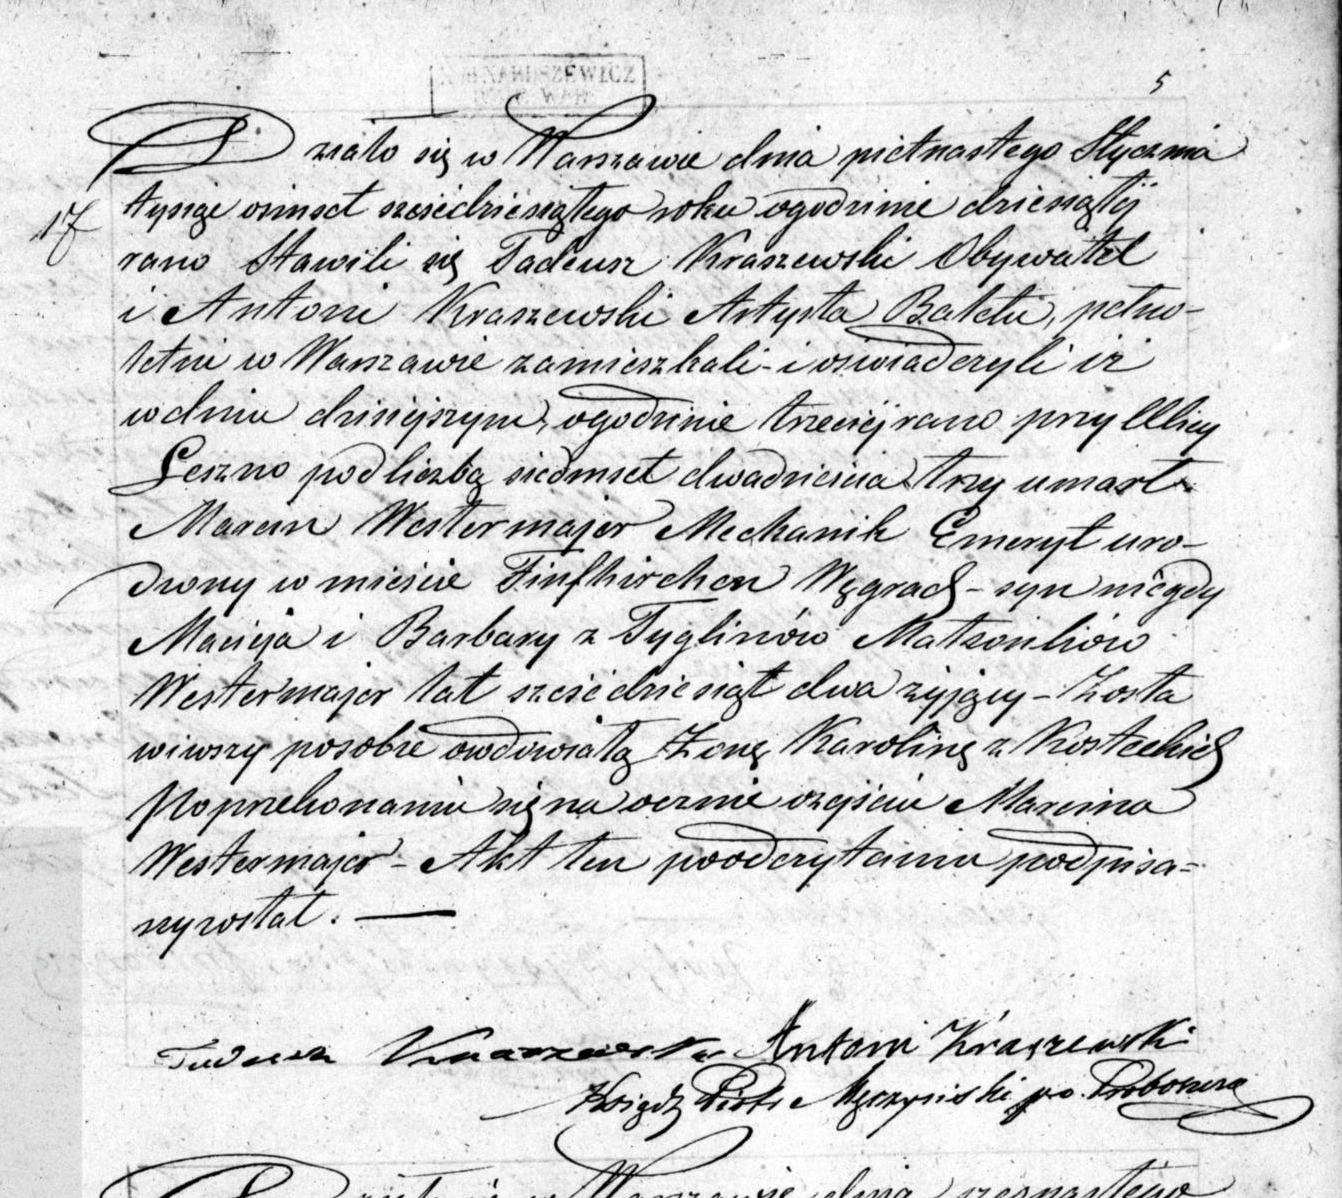 5
Działo się w Warszawie dnia piętnastego Stycznia
17
tysiąc osmset sześćdziesiątego roku o godzinie dziesiątéj
rano Stawili się Tadeusz Kraszewski Obywatel
i Antoni Kraszewski Artysta Baletu, pełno-
letni w Warszawie zamieszkali - i oświadczyli iż
w dniu dzisiejszym, o godzinie trzeciéj rano przy Ulicy
Leszno pod liczbą siedmset dwadzieścia trzy umarł
Marcin Westermajer Mechanik Emeryt uro-
dzony w mieście Finfkirchen Węgrach - syn niegdy
Macieja i Barbary z Tyglinów Małżonków
Westermajer lat sześćdziesiąt dwa żyjący - Zosta
wiwszy po sobie owdowiałą Żonę Karolinę z Kosteckich
Po przekonaniu się na ocznie o zejściu Marcina
Westermajer - Akt ten po odczytaniu podpisa=
ny został. —
Tadeusz Kraszewski Antoni Kraszewski
Ksiądz Piotr po. Proboszcza
Działo się w Warszawie dnia szesnastego